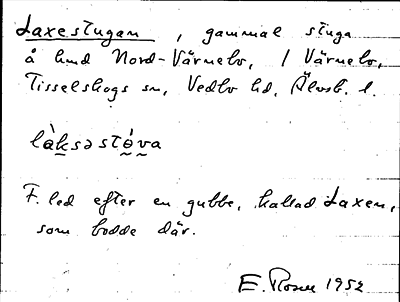 Laxestugan, gammal stuga
å hmd Nord-Värnebo, i Värnebo,
Tisselskogs sn, Vedbo hd, Älvsb. l.
làksəstó̰v̰a
F. led efter en gubbe, kallad Laxen,
som bodde där.
E. Rosen 1952